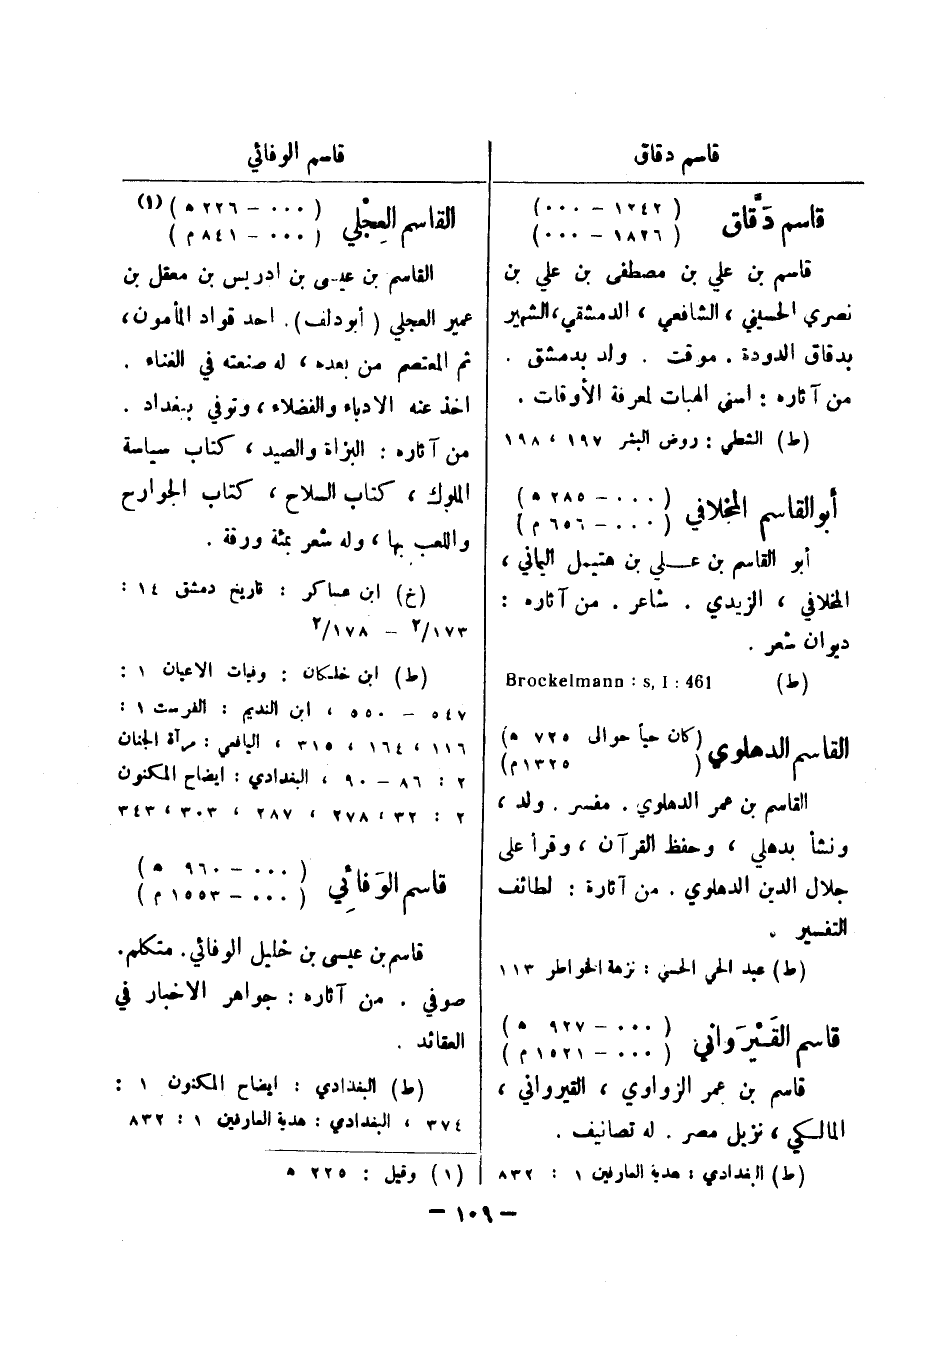 قاسم دقاق
قاسم دَقَّاق
( ١٢٤٢ – ٠٠٠)
( ١٨٢٦ – ٠٠٠)
قاسم بن علي بن مصطفى بن علي بن
نصري الحسيني ، الشافعي ، الدمشقي ، الشهير
بدقاق الدودة . موقت . ولد بدمشق .
من آثاره : اسنى الهبات لمعرفة الأوقات .
(ط) الشطي : روض البشر ١٩٧ ، ١٩٨
أبو القاسم المخلافي
( ٠٠٠ – ٢٨٥ ه )
( ٠٠٠ – ٦٥٦ م )
أبو القاسم بن عـلي بن هتيمل اليماني ،
المخلافي ، الزيدي . شاعر . من آثاره :
ديوان شعر .
(ط) Brockelmann : s, I : 461
القاسم الدهلوي
(كان حياً حوالى ٧٢٥ ه)
( ١٣٢٥م)
القاسم بن عمر الدهلوي . مفسر . ولد ،
ونشأ بدهلي ، وحفظ القرآن ، وقرأ على
جلال الدين الدهلوي . من آثارة : لطائف
التفسير .
(ط) عبد الحي الحسني : نزهة الخواطر ١١٣
قاسم القَيْرَواني
( ٠٠٠ – ٩٢٧ ه )
( ٠٠٠ – ١٥٢١ م )
قاسم بن عمر الزواوي ، القيرواني ،
المالكي ، نزيل مصر . له تصانيف .
(ط) البغدادي : هدية العارفين ١ : ٨٣٢
قاسم الوفائي
القاسم العِجْلي
( ٠٠٠ – ٢٢٦ ه ) (١)
( ٠٠٠ – ٨٤١ م )
القاسم بن عيسى بن ادريس بن معقل بن
عمير العجلي ( أبو دلف ) . احد قواد المأمون ،
ثم المعتصم من بعده ، له صنعته في الغناء .
اخذ عنه الادباء والفضلاء ، وتوفي ببغداد .
من آثاره : البزاة والصيد ، كتاب سياسة
الملوك ، كتاب السلاح ، كتاب الجوارح
واللعب بها ، وله شعر بمئة ورقة .
(خ) ابن عساكر : تاريخ دمشق ١٤ :
٢/١٧٣ – ٢/١٧٨
(ط) ابن خلكان : وفيات الاعيان ١ :
٥٤٧ – ٥٥٠ ، ابن النديم : الفرست ١ :
١١٦ ، ١٦٤ ، ٣١٥ ، اليافعي : مرآة الجنان
٢ : ٨٦ – ٩٠ ، البغدادي : ايضاح المكنون
٢ : ٣٢ ، ٢٧٨ ، ٢٨٧ ، ٣٠٣ ، ٣٤٣
قاسم الوَفائِي
( ٠٠٠ – ٩٦٠ ه )
( ٠٠٠ – ١٥٥٣ م )
قاسم بن عيسى بن خليل الوفائي . متكلم .
صوفي . من آثاره : جواهر الاخبار في
العقائد .
(ط) البغدادي : ايضاح المكنون ١ :
٣٧٤ ، البغدادي : هدية العارفين ١ : ٨٣٢
(١) وقيل : ٢٢٥ ه
– ١٠٩ –